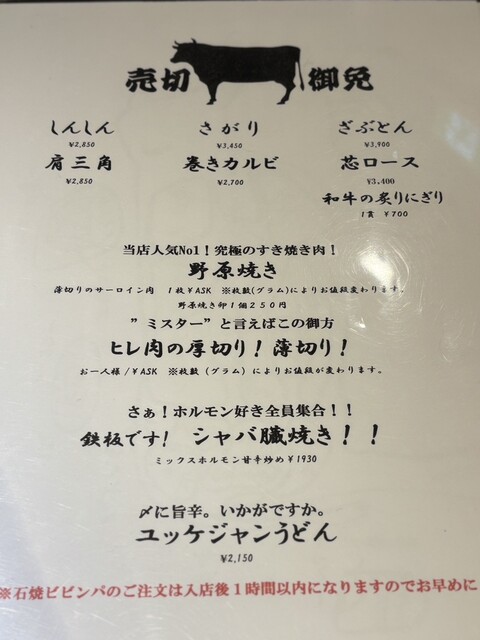 売切 御免
しんしん さがり ざぶとん
¥2,850 ¥3,450 ¥3,900
肩三角 巻きカルビ 芯ロース
¥2,850 ¥2,700 ¥3,400
和牛の炙りにぎり
1貫 ¥700
当店人気No1!究極のすき焼き肉!
野原焼き
薄切りのサーロイン肉 1枚¥ASK ※枚数(グラム)によりお値段変わります。
野原焼き卵1個250円
”ミスター”と言えばこの御方
ヒレ肉の厚切り!薄切り!
お一人様/¥ASK ※枚数(グラム)によりお値段が変わります。
さぁ!ホルモン好き全員集合!!
鉄板です! シャバ臓焼き!!
ミックスホルモン甘辛炒め¥1930
〆に旨辛。いかがですか。
ユッケジャンうどん
¥2,150
※石焼ビビンパのご注文は入店後1時間以内になりますのでお早めに